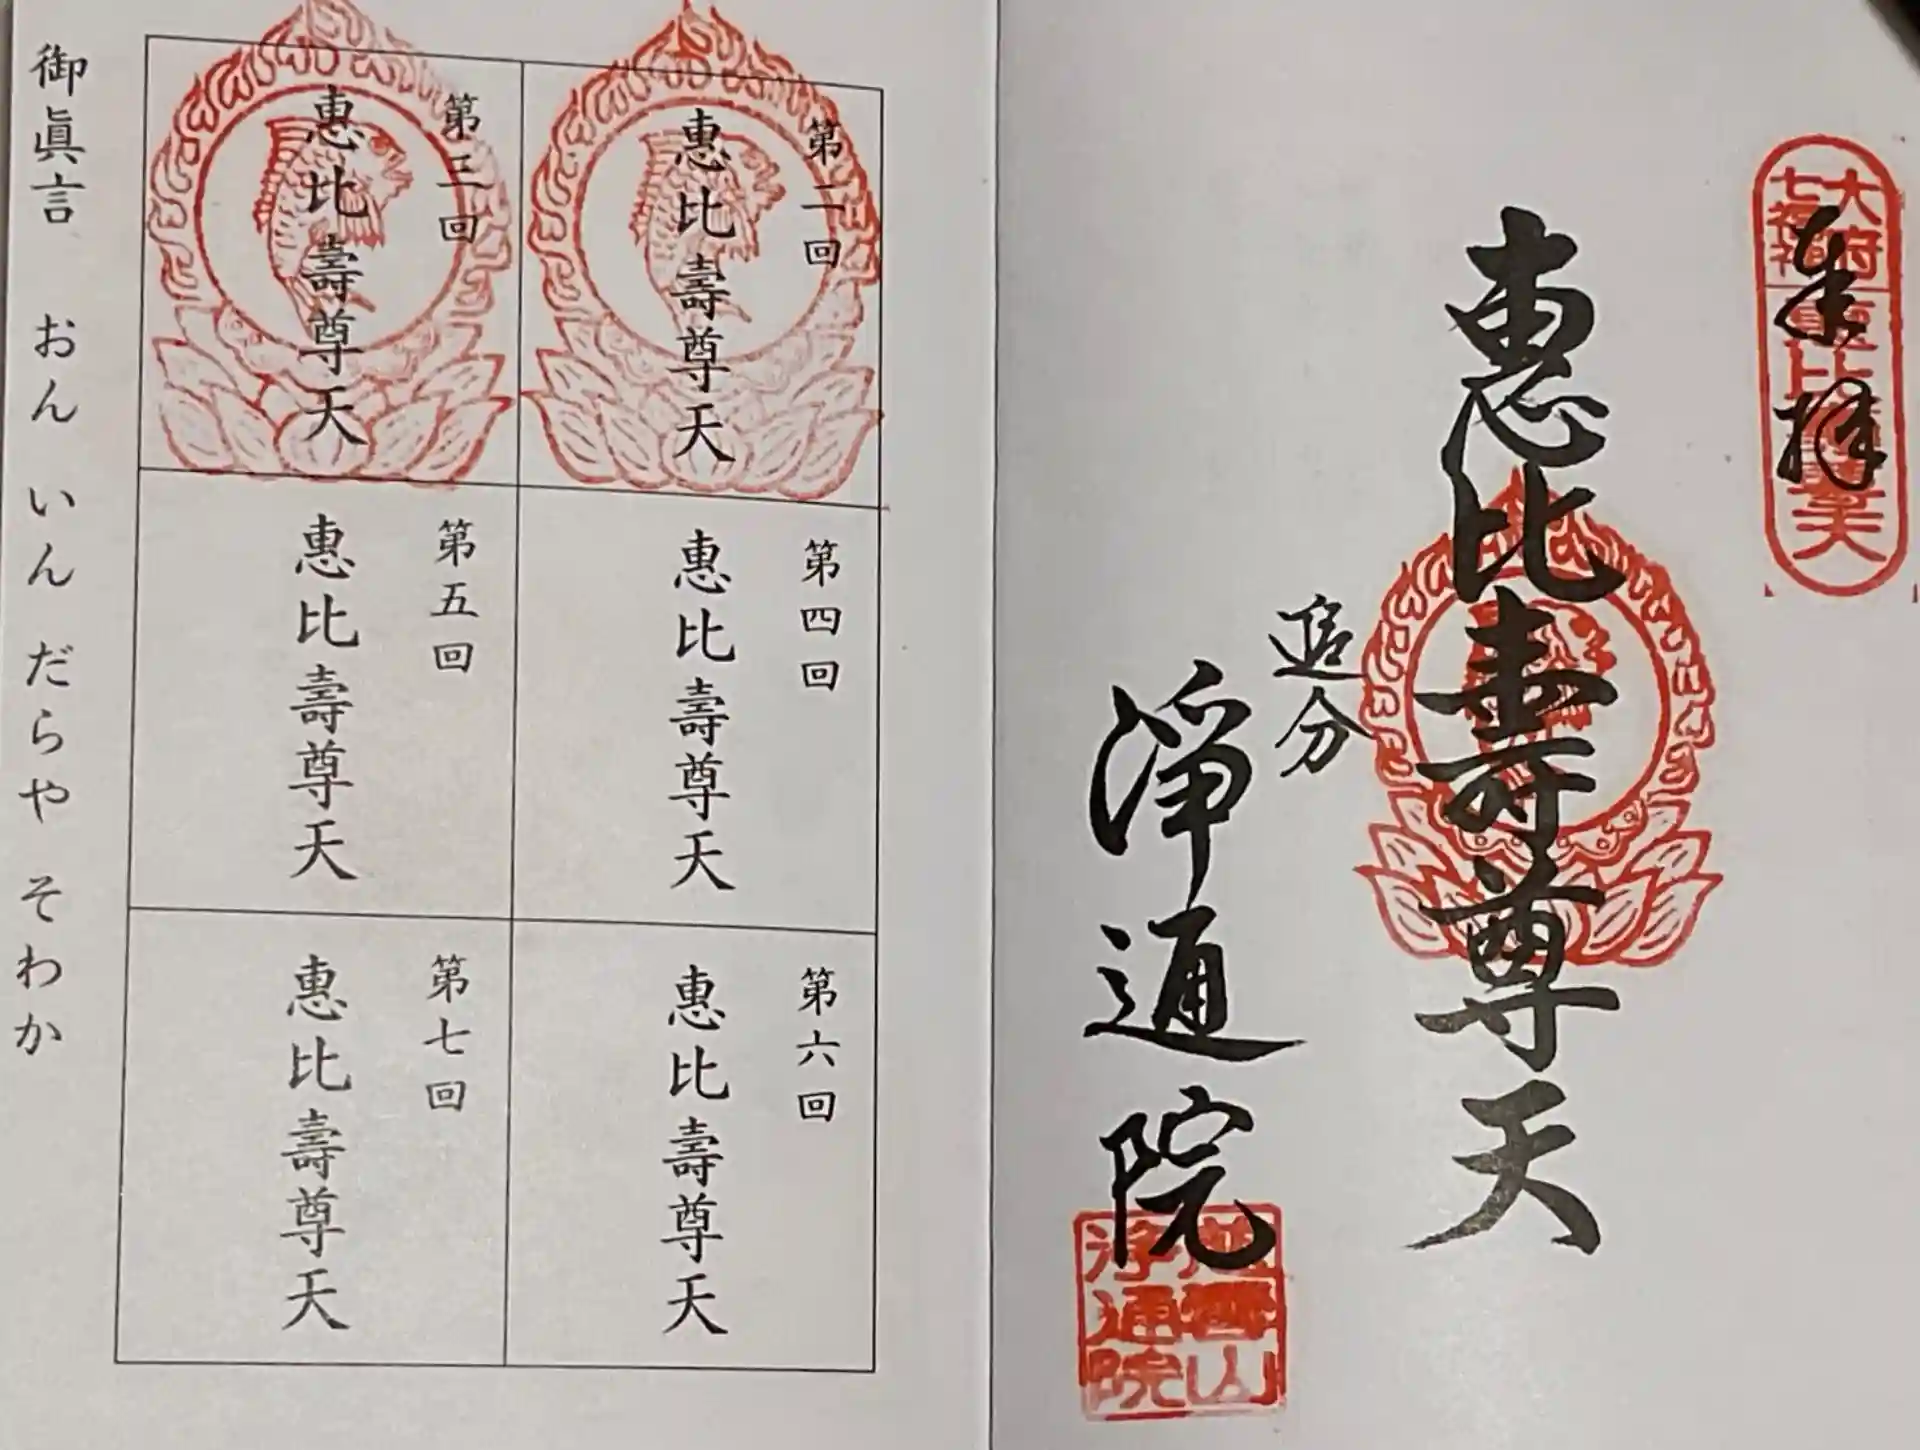 奉拝
大府
七福神
恵比壽尊天
惠比壽尊天
追分
淨通院
淨通院
第二回
惠比壽尊天
第三回
惠比壽尊天
第四回
惠比壽尊天
第五回
惠比壽尊天
第六回
惠比壽尊天
第七回
惠比壽尊天
御眞言 おん いん だらや そわか